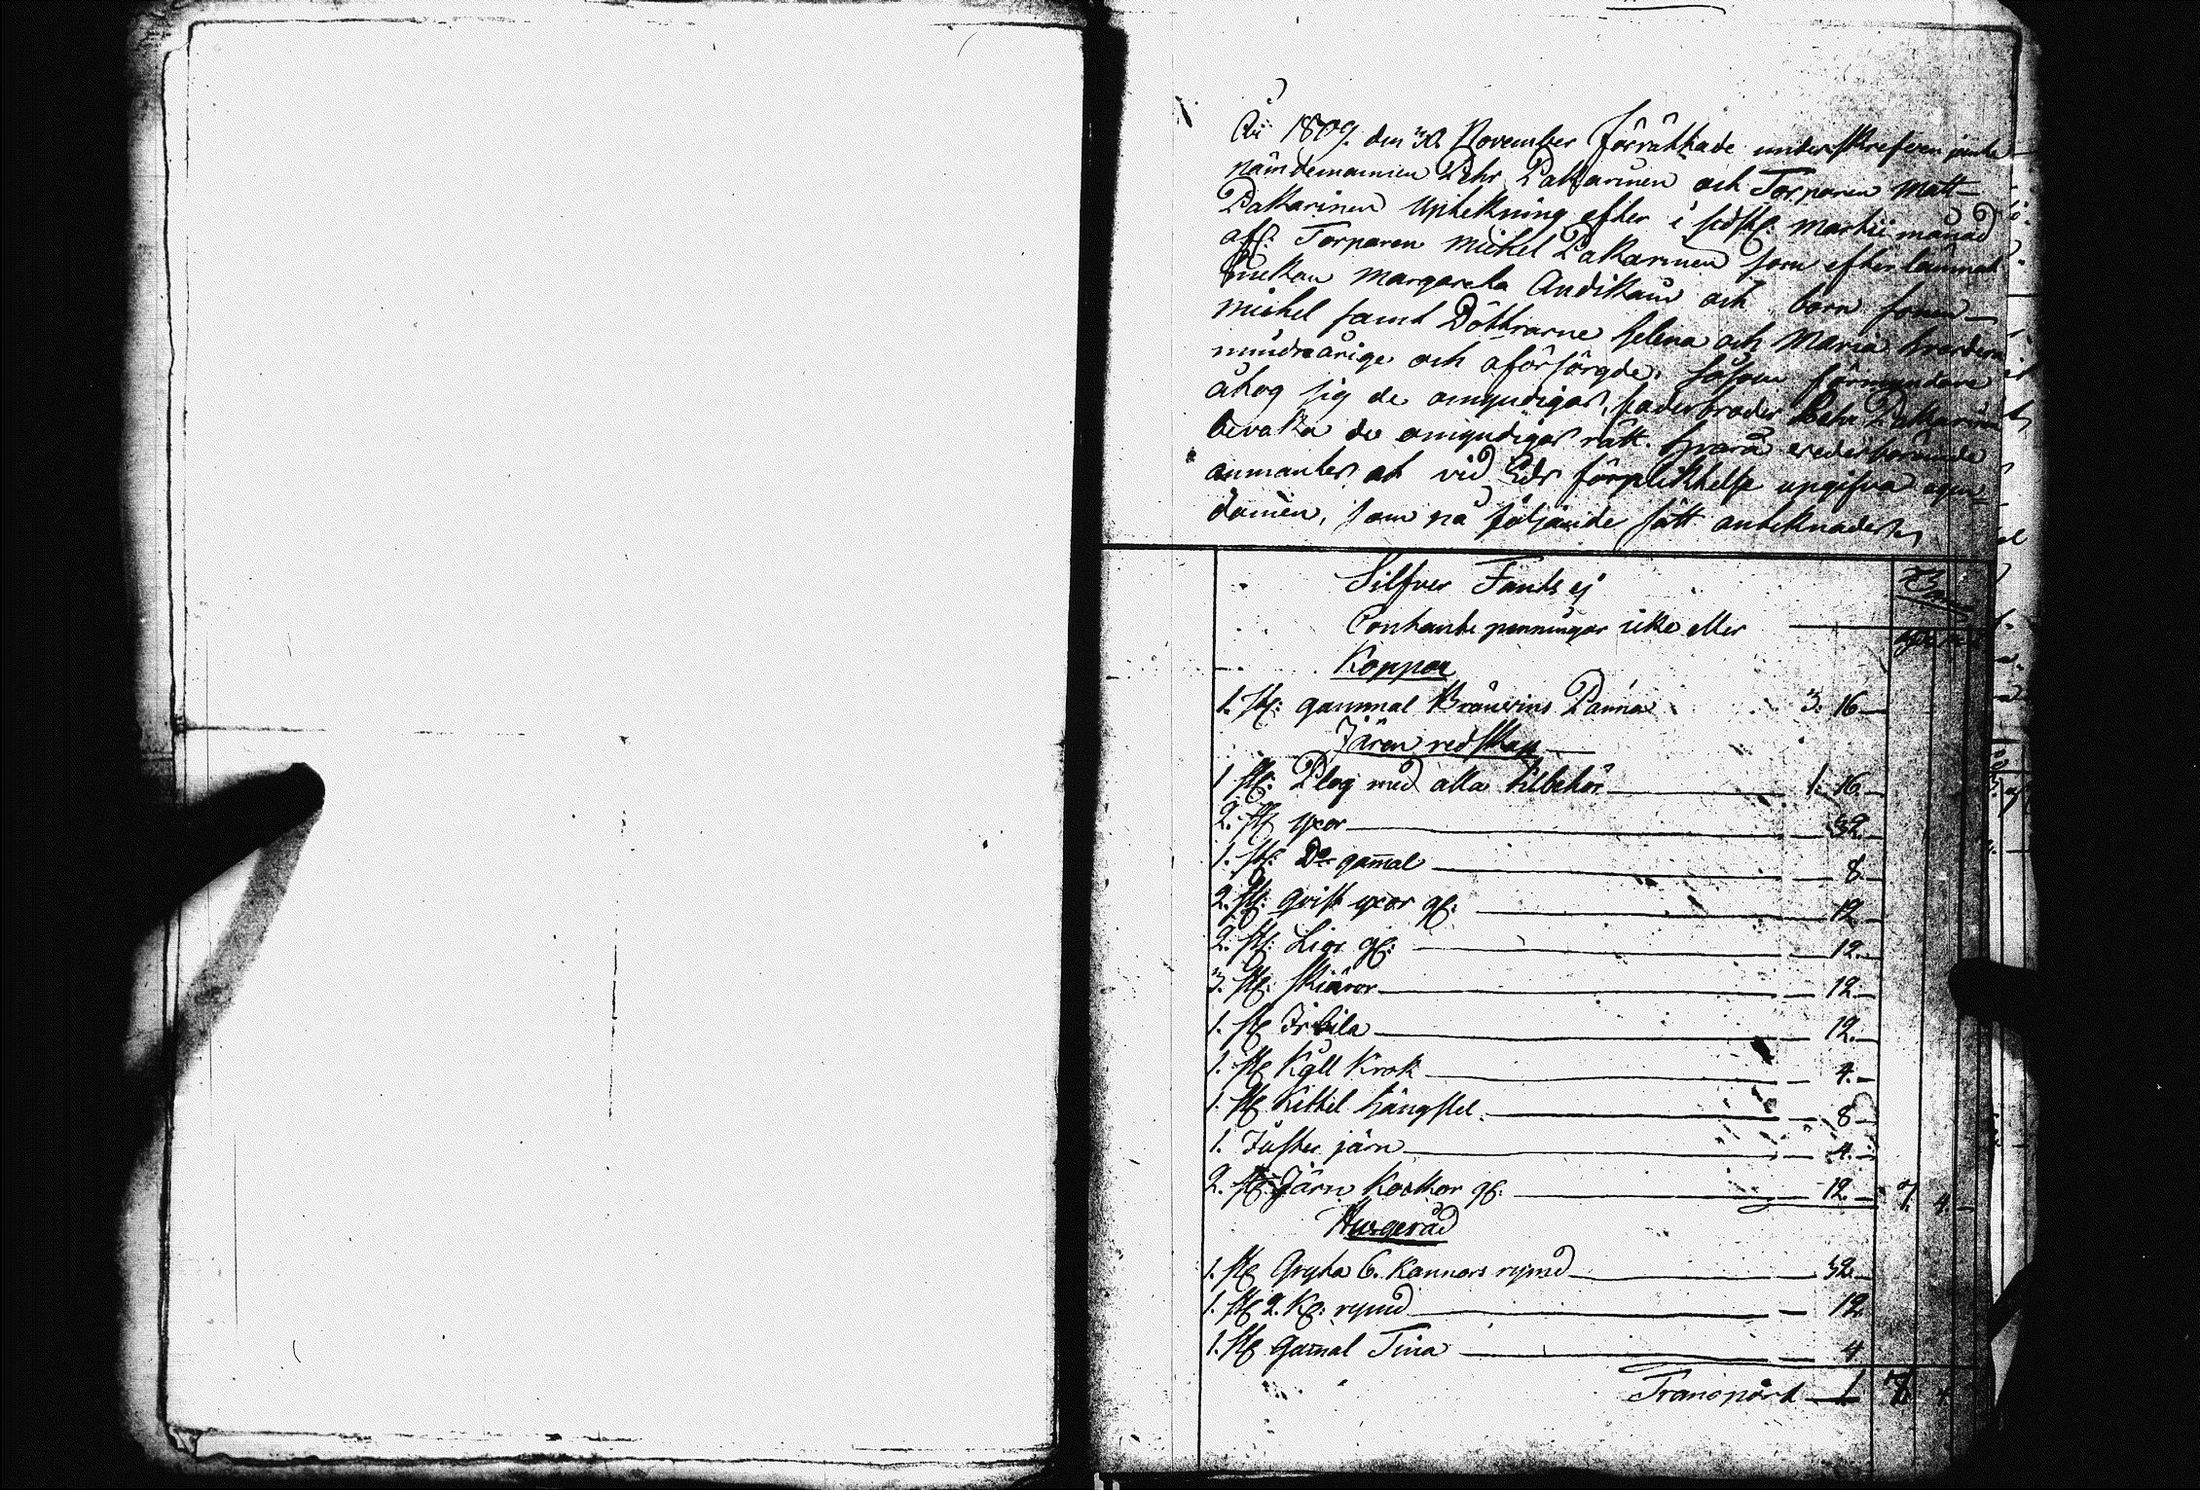 År 1809. den 30 November förrättade underskrefven jemte
nämdemannen Pehr Pakarinen och Torparen Matt
Pakarinen upteckning efter i sidstl. Martii månad
afl. Torparen Michel Pakarinen som efterlämnat
Enckan Margareta Andikain och barn sonen
Michel samt Döttrarne Helena och Maria
mindreårige och oförsörgde, såsom förmyndare
åtog sig de omyndigas faderbroder Pehr Pakarinen
bevaka de omyndigas rätt. hvarå vederbörande
anmantes at vid Eds förplicktelse upgifva egen-
domen, som på följande sätt antecknades
Silfver Fants ej
Contante penningar icke eller
Koppar
1. st: gammal Bränvins Panna 3. 16
Jären redskap
1 st: Plog med alla tillbehör 1. 16
2. st yxor 32
1. st: Do gamal 8
2. st: qvist yxor gl: 12
2. st: Liar gl: 12
3. st: skiäror 12
1. st Isbila 12
1. st Kåll Krok 4
1. st Kittel hängslel 8
1. Juster järn 4
2. st: Järn Krokor gl: 12 7. 4
Husgeråd
1. st Gryta 6. Kannors rymd 32
1. st 2. K: rymd 12
1. st Gamal Tina 4
Transport 1 7. 4